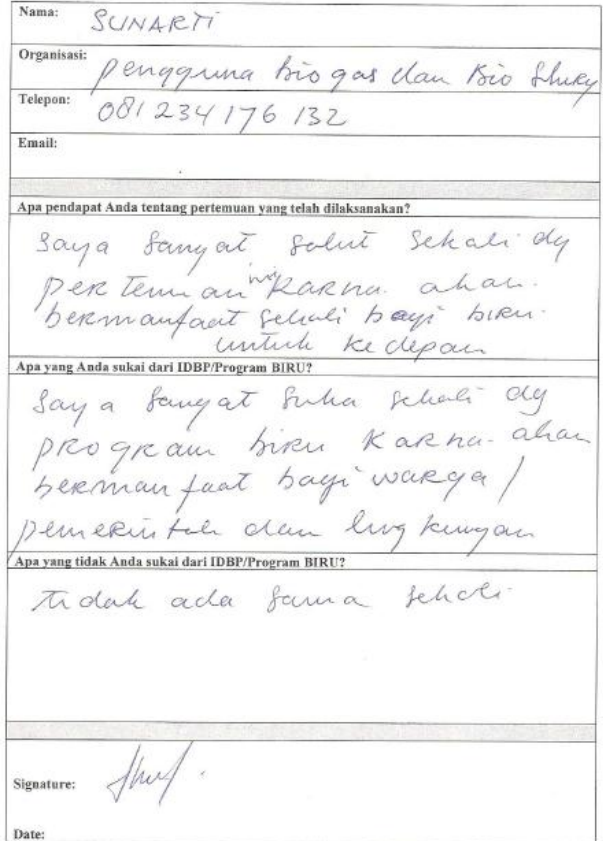 Nama: SUNARTI
Organisasi: pengguna biogas dan Bio Slurry
Telepon: 081234176132
Email:
Apa pendapat Anda tentang pertemuan yang telah dilaksanakan?
Saya sangat salut sekali dg
pertemuan ini karna akan
bermanfaat sekali bagi biru
untuk kedepan
Apa yang Anda sukai dari IDBP/Program BIRU?
Saya sangat suka sekali dg
program biru karna akan
bermanfaat bagi warga /
pemerintah dan lingkungan
Apa yang tidak Anda sukai dari IDBP/Program BIRU?
tidak ada sama sekali
Signature:
Date: